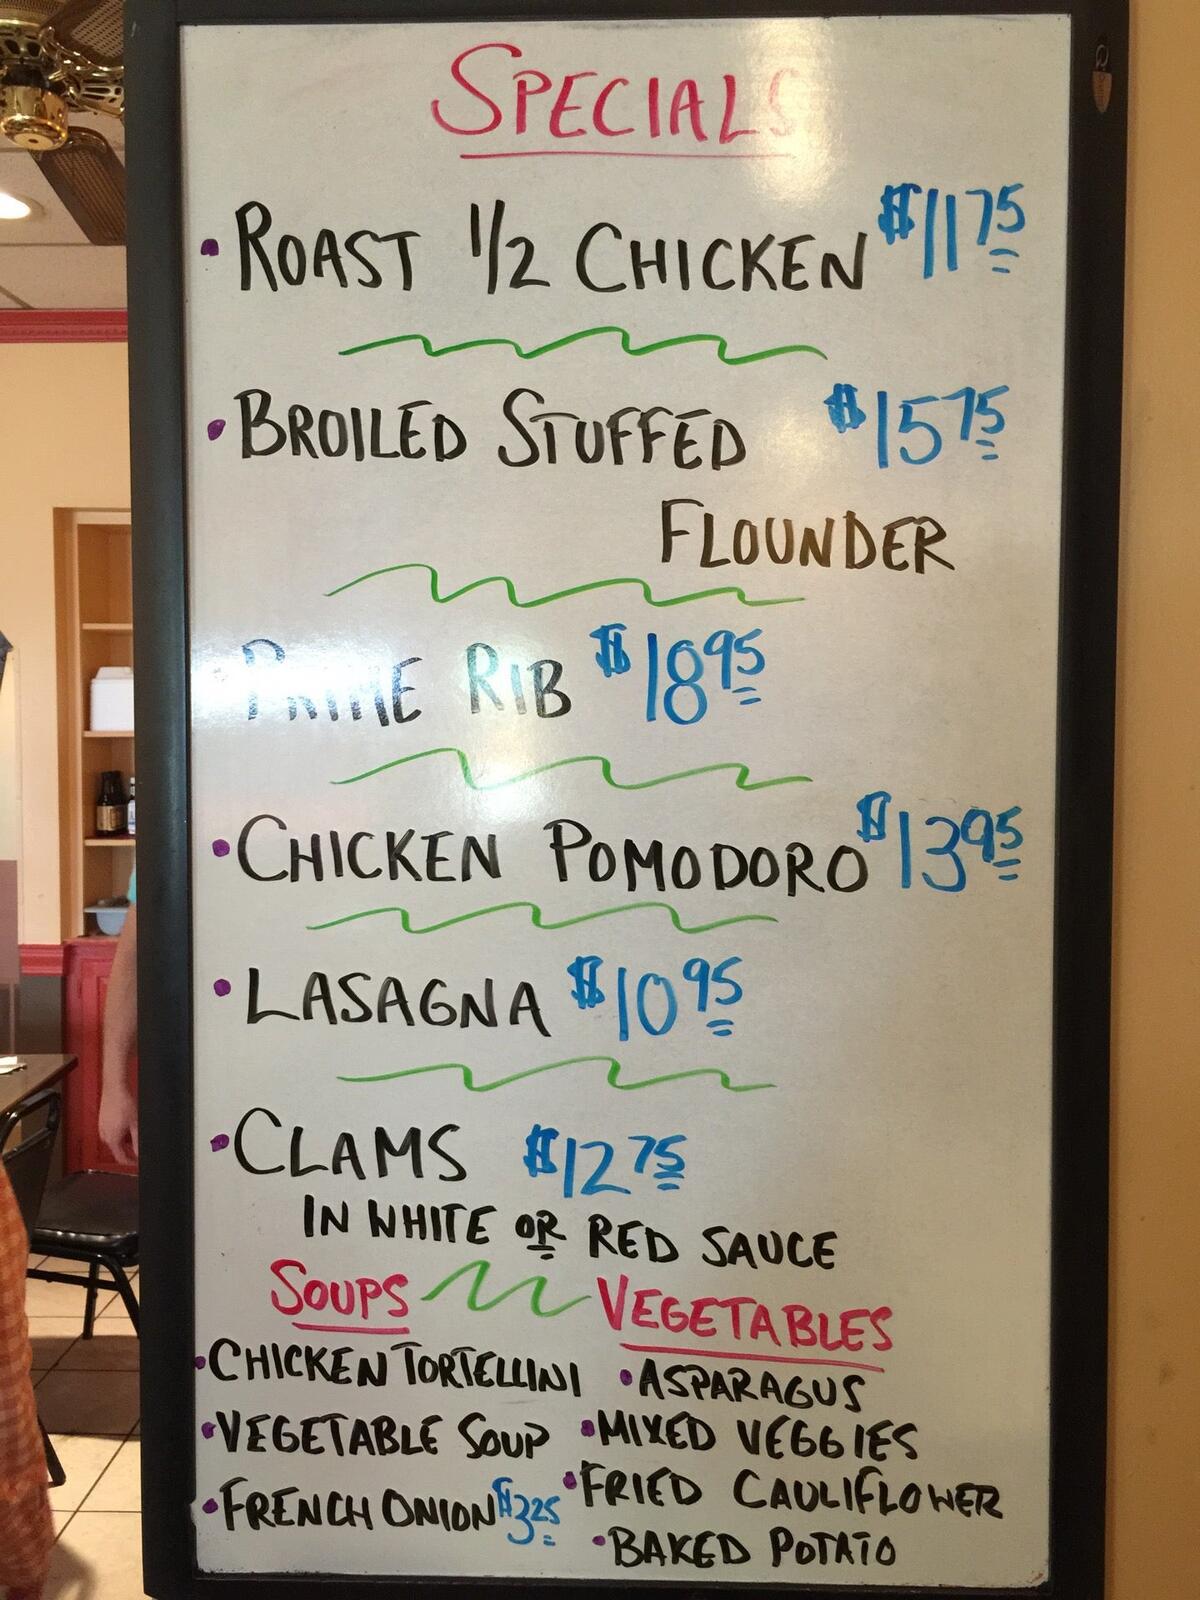 SPECIALS
• ROAST 1/2 CHICKEN $11.75
• BROILED STUFFED $15.75
FLOUNDER
• PRIME RIB $18.95
• CHICKEN POMODORO $13.95
• LASAGNA $10.95
• CLAMS $12.75
IN WHITE OR RED SAUCE
SOUPS
• CHICKEN TORTELLINI
• VEGETABLE SOUP
• FRENCH ONION $3.25
VEGETABLES
• ASPARAGUS
• MIXED VEGGIES
• FRIED CAULIFLOWER
• BAKED POTATO